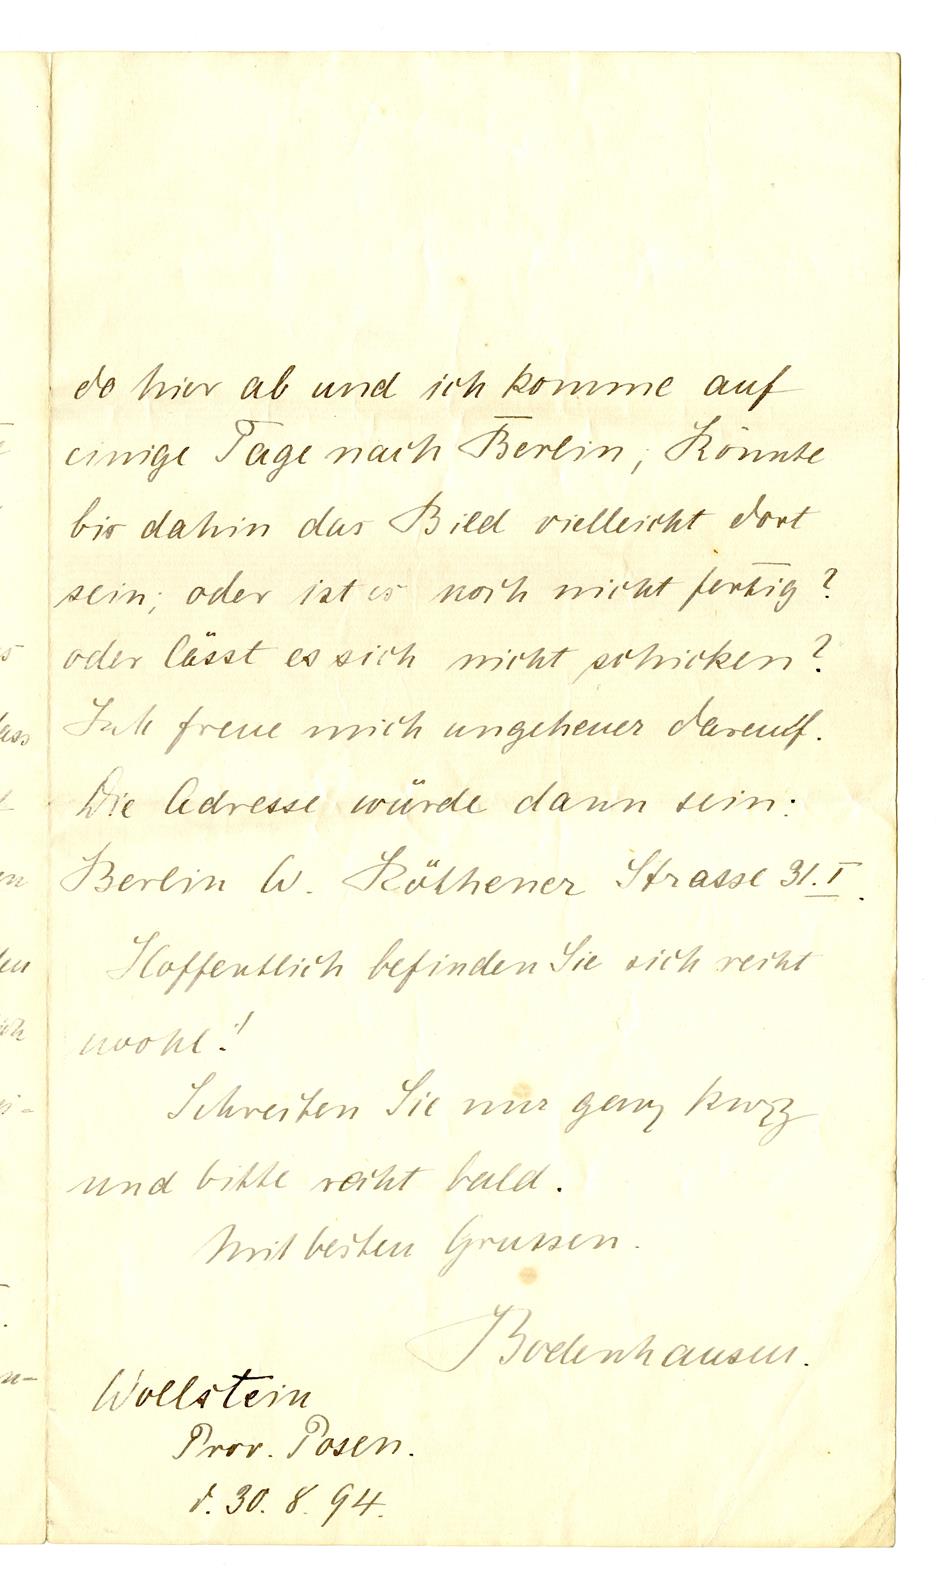 do hier ab und ich komme auf
einige Tage nach Berlin; Könnte
bis dahin das Bild vielleicht dort
sein; oder ist es noch nicht fertig?
oder lässt es sich nicht schicken?
Ich freue mich ungeheuer darauf.
Die Adresse würde dann sein:
Berlin W. Köthener Strasse 31. I.
Hoffentlich befinden Sie sich recht
wohl!
Schreiben Sie nur ganz kurz
und bitte recht bald.
Mit besten Grussen.
Bodenhausen.
Wollstein
Prov. Posen.
d. 30. 8. 94.